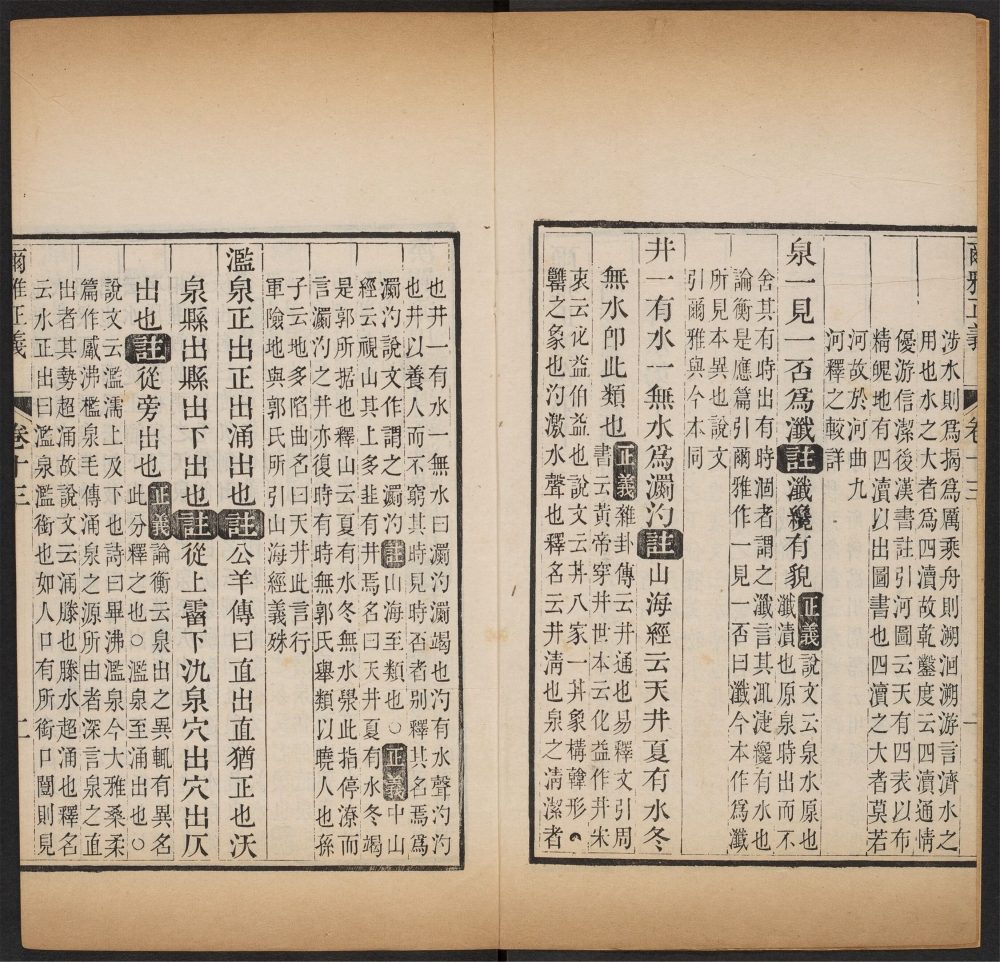 爾雅正義
卷十三
一
涉水則爲揭爲厲乘舟則溯洄溯游言濟水之
用也水之大者爲四瀆故乾鑿度云四瀆通情
優游信潔後漢書註引河圖云天有四表以布
精魄地有四瀆以出圖書也四瀆之大者莫若
河故於河曲九
河釋之較詳
泉一見一否爲瀸註瀸纔有貌正義說文云泉水原也
瀸漬也原泉時出而不
舍其有時出有時涸者謂之瀸言其泒疌纔有水也
論衡是應篇引爾雅作一見一否曰瀸今本作爲瀸
所見本異也說文
引爾雅與今本同
井一有水一無水爲瀱汋註山海經云天井夏有水冬
無水卽此類也正義雜卦傳云井通也易釋文引周
書云黃帝穿井世本云化益作井宋
衷云化益伯益也說文云丼八家一丼象構韓形
罋之象也汋激水聲也釋名云井淸也泉之淸潔者
也井一有水一無水曰瀱汋瀱竭也汋有水聲汋汋
也井以養人而不窮其時見時否者别釋其名焉爲
瀱汋說文作謂之瀱汋註山海至類也○正義中山
經云視山其上多韭有井焉名曰天井夏有水冬竭
是郭所据也釋山云夏有水冬無水澩此指停潦而
言瀱汋之井亦復時有時無郭氏舉類以曉人也孫
子云地多陷曲名曰天井此言行
軍險地與郭氏所引山海經義殊
濫泉正出正出涌出也註公羊傳曰直出直猶正也沃
泉縣出縣出下出也註從上霤下氿泉穴出穴出仄
出也註從旁出也正義論衡云泉出之異輒有異名
此分釋之也○濫泉至涌出也○
說文云濫濡上及下也詩曰畢沸濫泉今大雅桑柔
篇作觱沸檻泉毛傳涌泉之源所由者深言泉之直
出者其勢超涌故說文云涌滕也滕水超涌也釋名
云水正出曰濫泉濫銜也如人口有所銜口闓則見
爾雅正義
卷十三
二